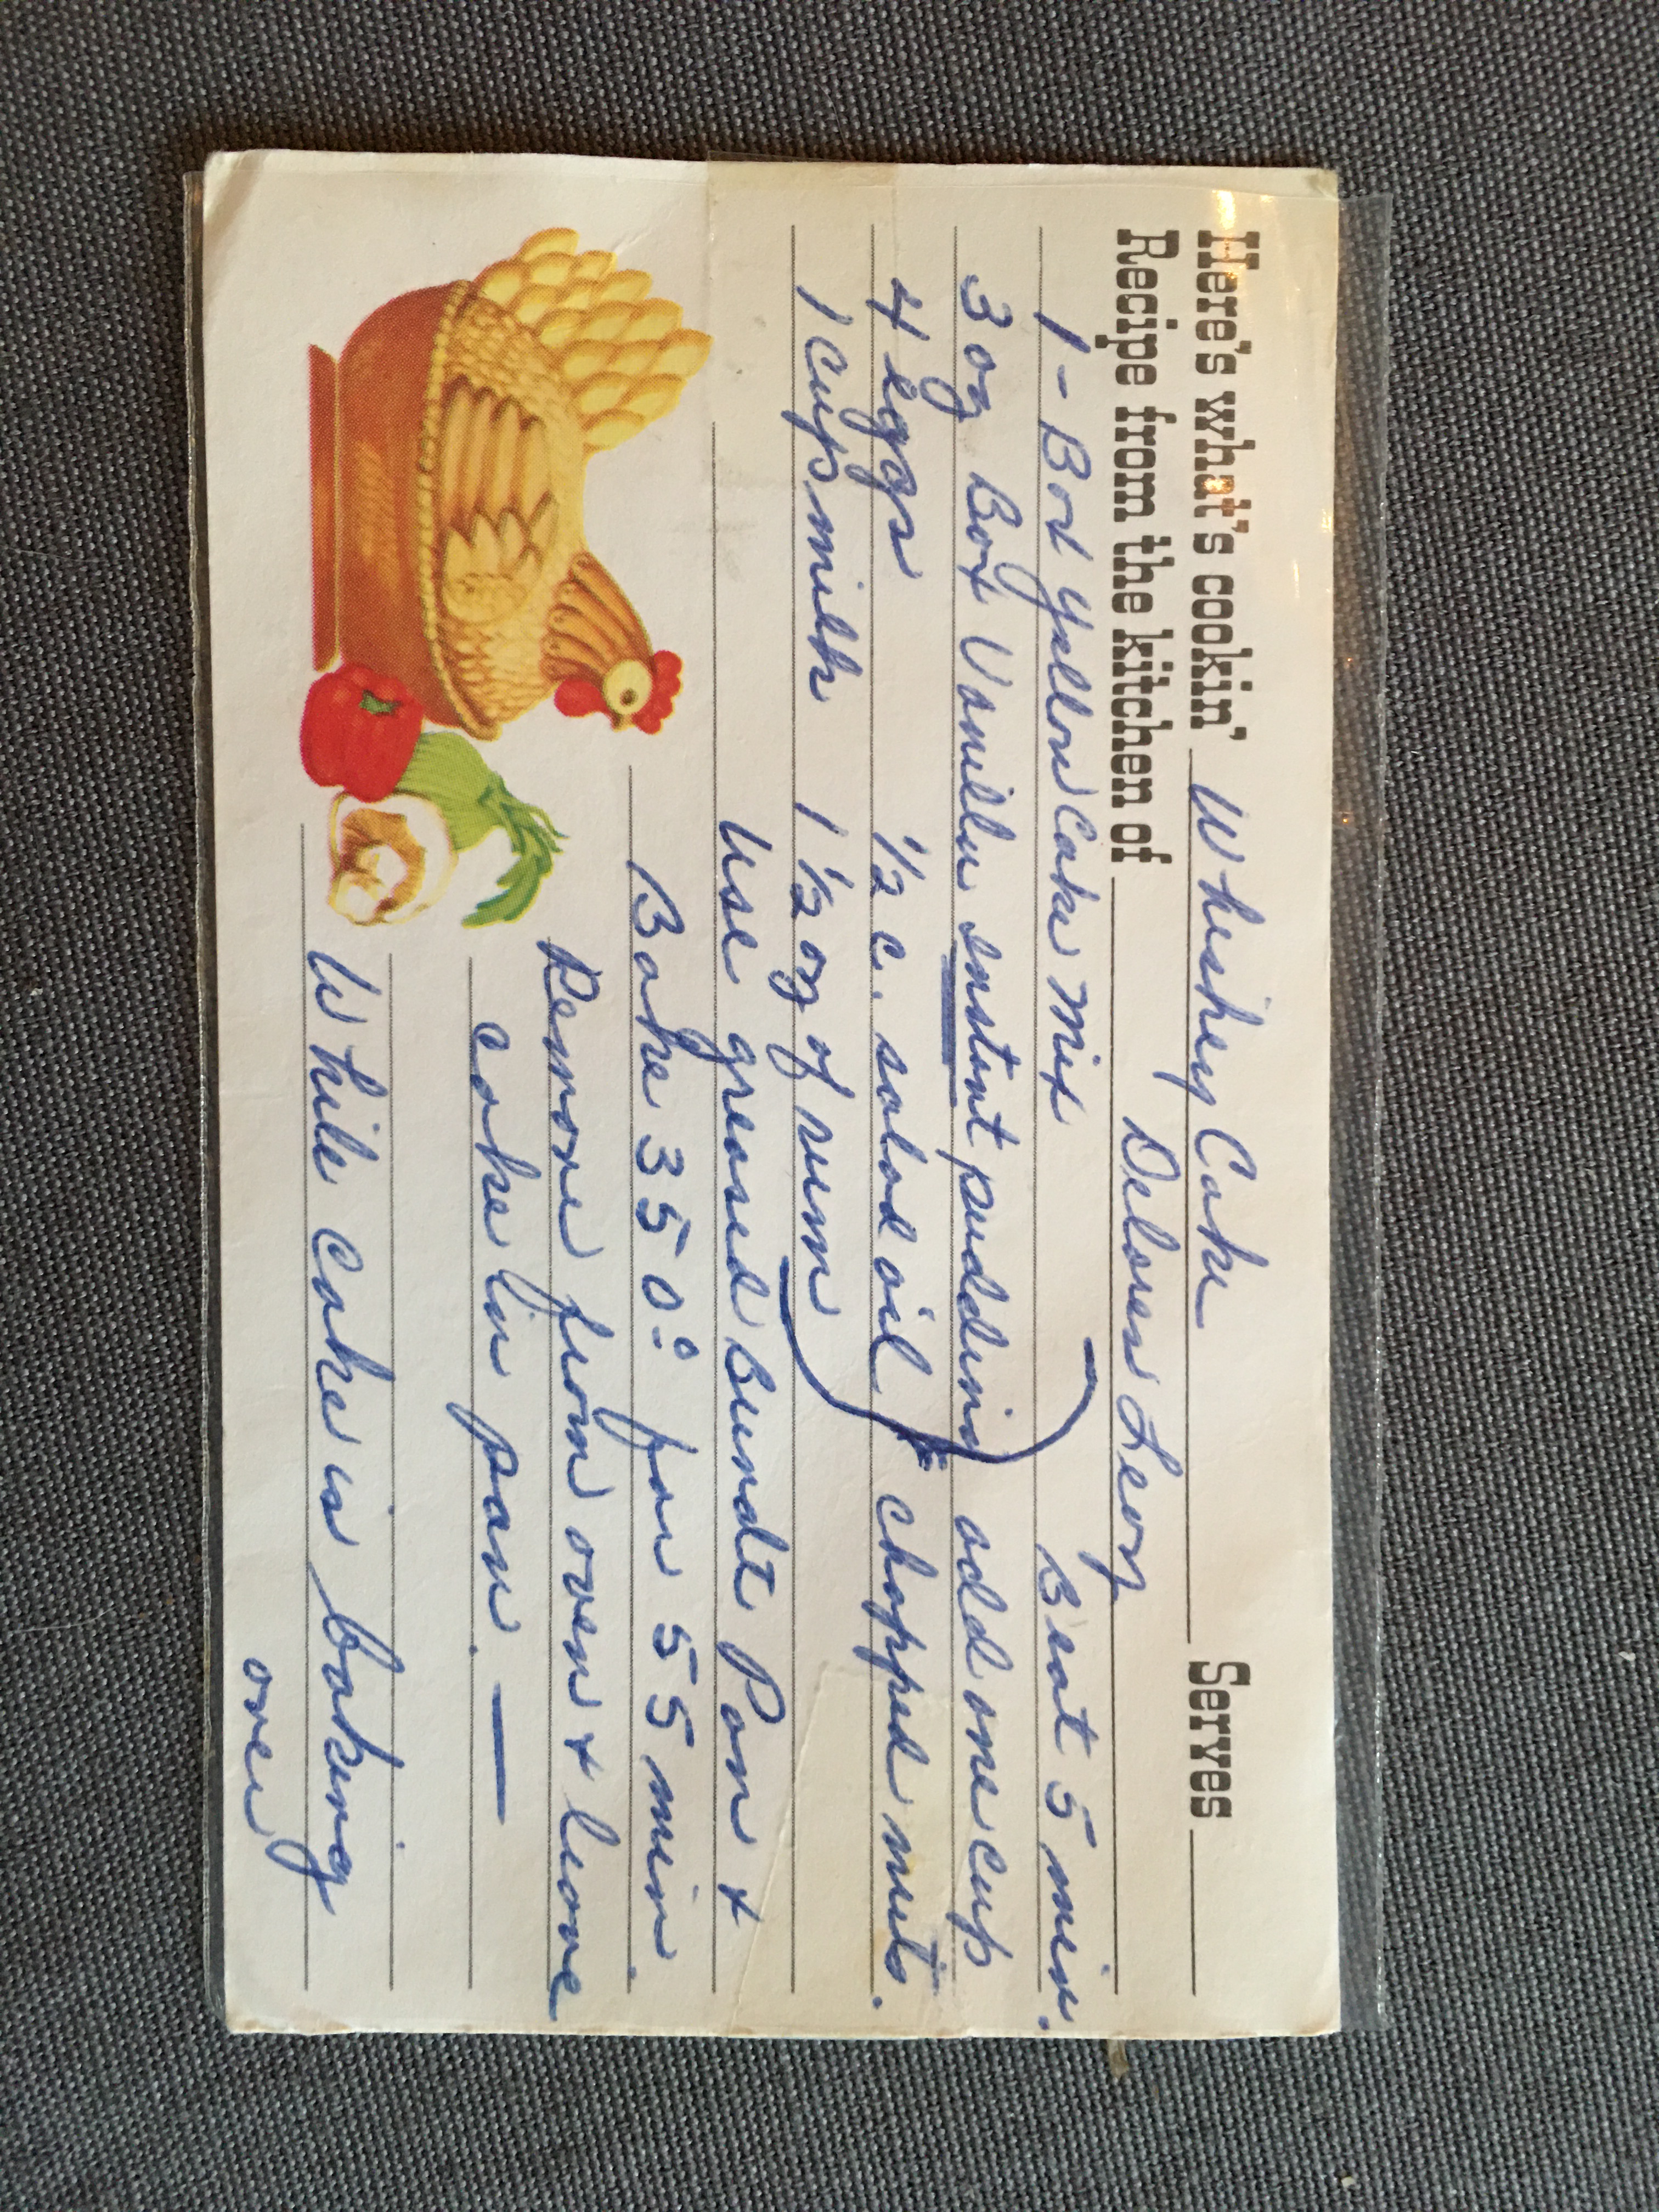 Here's what's cookin' Whiskey Cake Serves
Recipe from the kitchen of Delores Leory
1 - Box yellow cake mix Beat 5 min.
3 oz Box Vanilla instant pudding add one cup
4 eggs 1/2 c. salad oil chopped nuts.
1 cup milk 1 1/2 oz of rum
Use greased Bundt Pan +
Bake 350° for 55 min.
Remove from oven + leave
cake in pan. —
While cake is baking
over